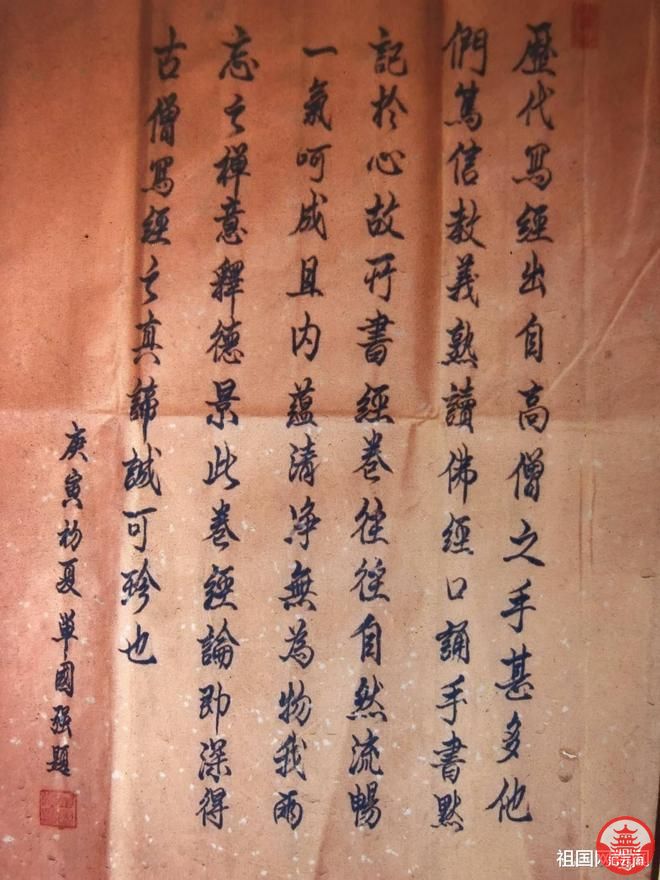 歷代寫經出自高僧之手甚多他
們篤信教義熟讀佛經口誦手書默
記於心故所書經卷往往自然流暢
一氣呵成且内蘊清净無為物我兩
忘之禅意釋德景此卷經論即深得
古僧寫經之真諦誠可珍也
庚寅初夏單國强題
祖国网